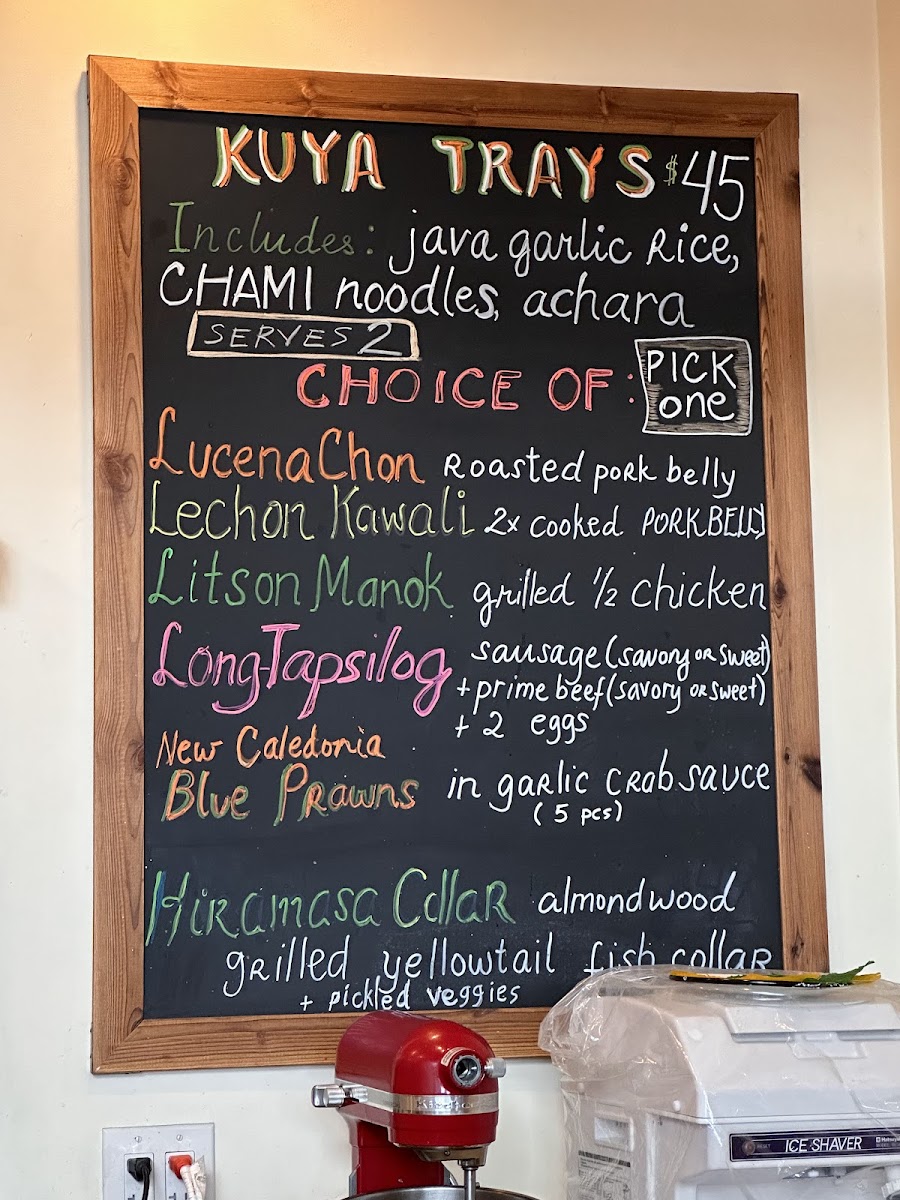 KUYA TRAYS $45
Includes: java garlic Rice,
CHAMI noodles, achara
SERVES 2
CHOICE OF:
PICK
one
LucenaChon Roasted pork belly
Lechon Kawali 2x cooked PORK BELLY
Litson Manok grilled 1/2 chicken
Long-Tapsilog sausage (savory or sweet)
+ prime beef (savory or sweet)
+ 2 eggs
New Caledonia
Blue Prawns in garlic crab sauce
(5 pcs)
Hiramasa Collar almond wood
grilled yellowtail fish collar
+ pickled veggies
KitchenAid
RESET ICE SHAVER